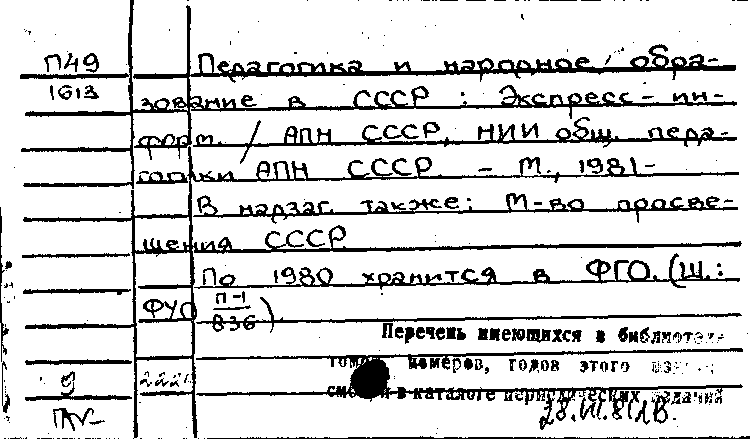 П49
1613
Педагогика и народное обра-
зование в СССР : Экспресс-ин-
форм. / АПН СССР, НИИ общ. педа-
гогики АПН СССР. - М., 1981-
В надзаг. также: М-во просве-
щения СССР.
По 1980 хранится в ФГО. (Ш.:
ФУО П-1
836).
Перечень имеющихся в библиотеке
томов, номеров, годов этого
смотри в каталоге периодических изданий
9